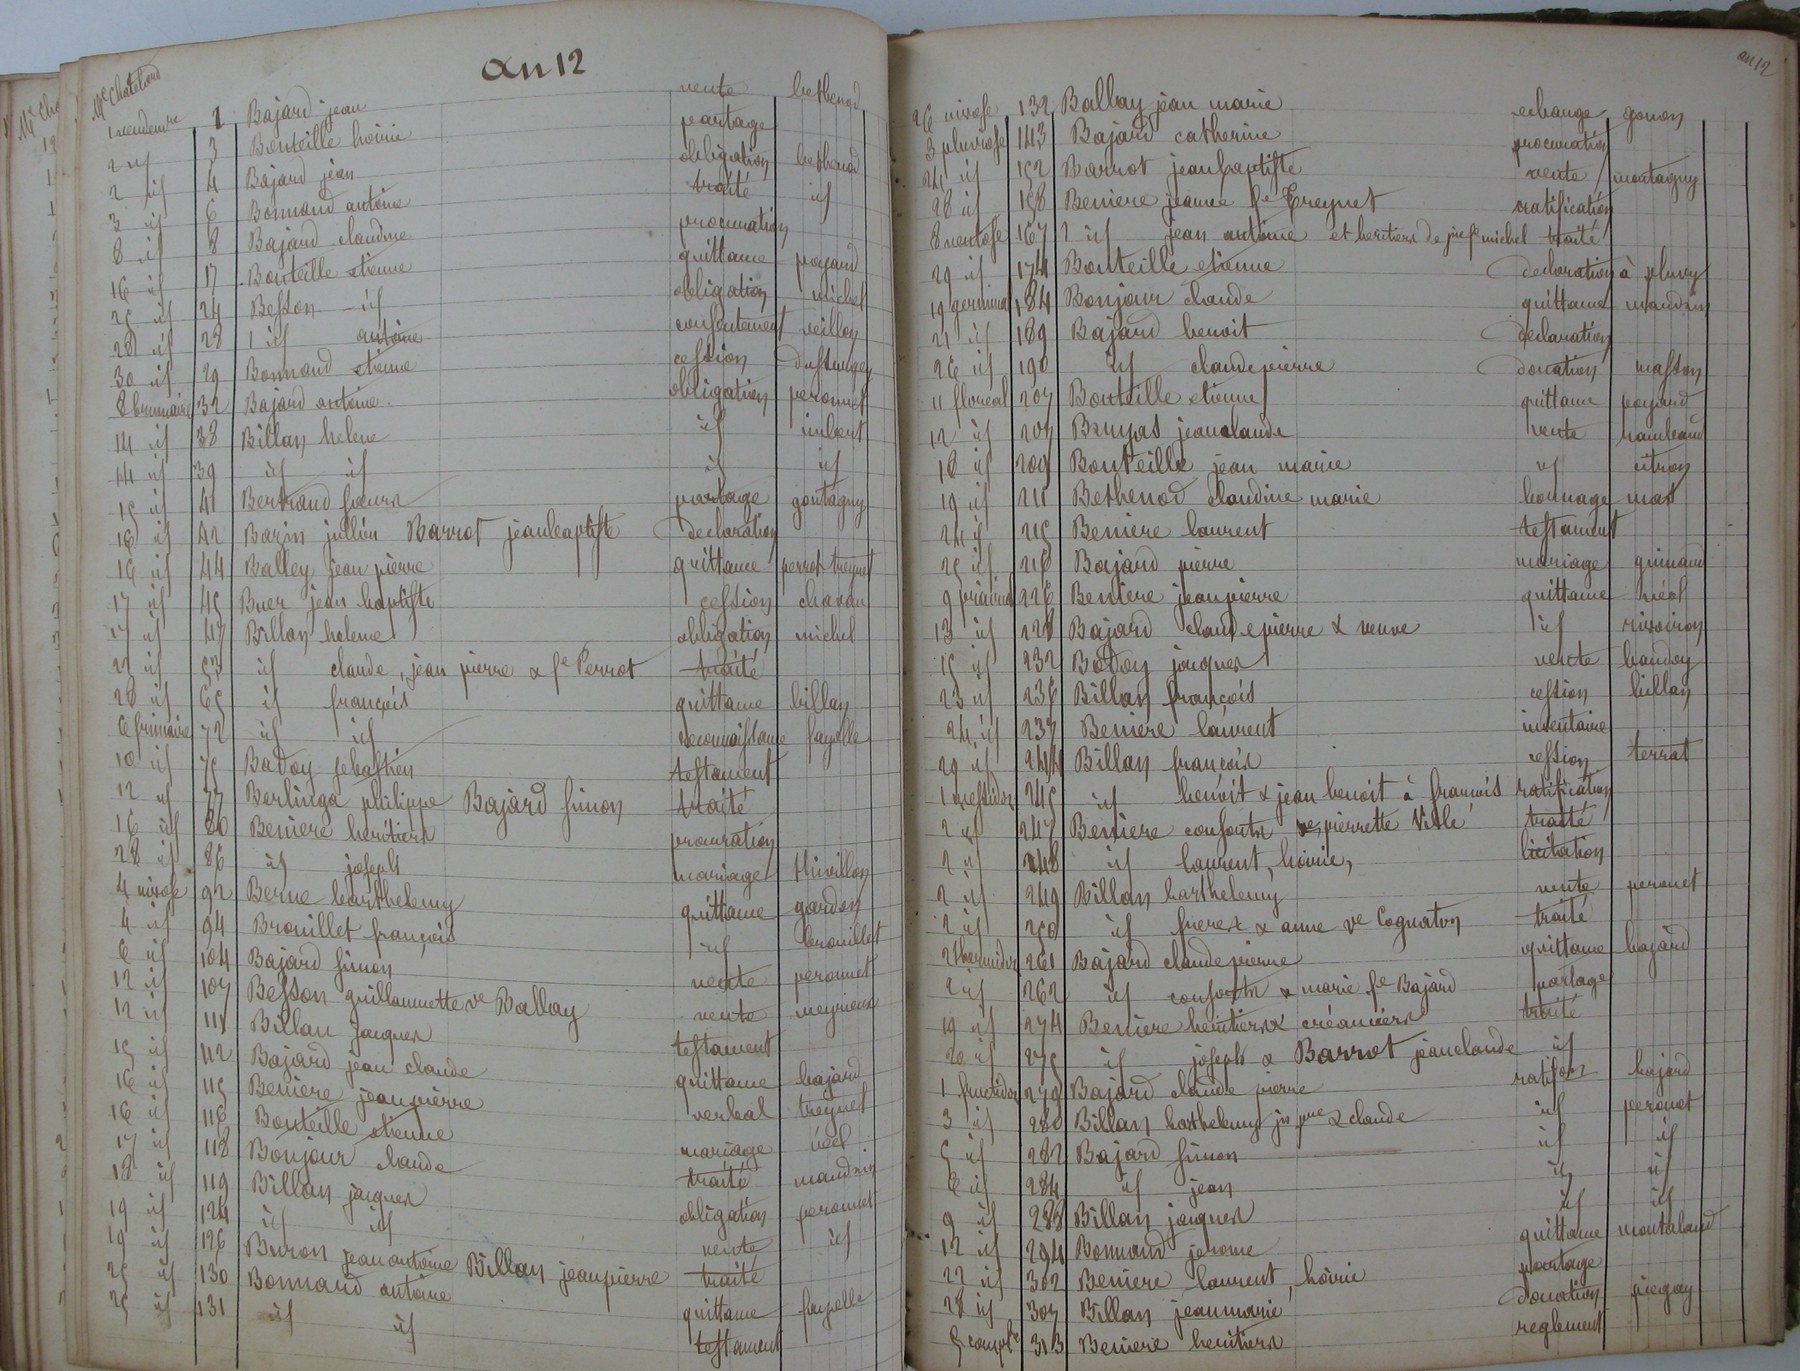 an 12
Me Chateland
1 vendemre 1 Bajard jean vente bethenod
2 id 3 Bouteille hoirie partage
2 id 4 Bajard jean obligation bethenod
3 id 6 Bonnand antoine traité id
8 id 8 Bajard claudine procuration
16 id 17 Bouteille etienne quittance poyard
25 id 24 Besson id obligation michel
28 id 28 id antoine consentement veillon
30 id 29 Bonnand etienne cession
8 brumaire 32 Bajard antoine obligation peronnet
14 id 38 Billan helene id imbert
14 id 39 id id id id
15 id 41 Bertrand soeurs partage gontagny
16 id 42 Bazin jullien Barrot jeanbaptiste declaration
16 id 44 Balley jean pierre quittance perrot treynet
17 id 45 Buer jean baptiste cession chavan
17 id 47 Billan helene obligation michel
21 id 53 id claude, jean pierre & fe Perrot traité
28 id 65 id françois quittance billan
6 frimaire 72 id id reconnaissance fayolle
10 id 75 Badoy sebastien testament
12 id 77 Berlinga philippe Bajard simon traité
16 id 80 Beniere heritiers procuration
28 id 86 id joseph mariage thivillon
4 nivose 92 Berne barthelemy quittance gardon
4 id 94 Brouillet françois id brouillet
6 id 104 Bajard simon vente peronnet
12 id 107 Besson guillaumette ve Balbay vente meyrieux
12 id 111 Billan jacques testament
15 id 112 Bajard jean claude quittance bajard
16 id 115 Beniere jeanpierre verbal treynet
16 id 116 Bouteille etienne mariage néel
17 id 118 Bonjour claude traité mandrin
18 id 119 Billan jacques obligation peronnet
19 id 124 id id vente id
19 id 126 Buron jeanantoine Billan jeanpierre traité
25 id 130 Bonnand antoine quittance fayolle
25 id 131 id id testament
an 12
26 nivose 132 Balbay jean marie echange gonon
3 pluviose 143 Bajard catherine procuration
24 id 152 Barrot jeanbaptiste vente montagny
28 id 158 Beniere jeanne fe Treynet ratification
8 ventose 167 id jean antoine et heritiers de jnfs michel traité
29 id 174 Bouteille etienne declaration à pluvy
19 germinal 184 Bonjour claude quittance mandrin
21 id 189 Bajard benoit declaration
26 id 190 id claudepierre donation masson
11 floreal 207 Bouteille etienne quittance poyard
12 id 207 Bruyas jeanclaude vente rambaud
18 id 209 Bouteille jean marie id citron
19 id 211 Bethenod claudine marie louage mas
24 id 215 Beniere laurent testament
25 id 216 Bajard pierre mariage guinand
9 prairial 226 Beniere jeanpierre quittance néel
13 id 228 Bajard claudepierre & veuve id rivoiron
15 id 232 Badoy jacques vente baudoy
23 id 236 Billan françois cession billan
24 id 237 Beniere laurent inventaire
29 id 244 Billan françois cession terrat
1 messidor 245 id benoit & jean benoit à francois ratification
2 id 247 Beniere consorts, pierrette Viollé traité
2 id 248 id laurent, hoirie, licitation
2 id 249 Billan barthelemy vente peronet
2 id 250 id freres & anne ve Cognaton traité
2 thermidor 261 Bajard claudepierre quittance bajard
2 id 262 id consorts & marie fe Bajard partage
19 id 274 Beniere heritiers & créanciers traité
20 id 275 id joseph & Barrot jeanclaude id
1 fructidor 279 Bajard claude pierre ratifon bajard
3 id 280 Billan barthelemy jn pre & claude id peronet
5 id 282 Bajard simon id id
8 id 284 id jean id id
9 id 288 Billan jacques id id
12 id 294 Bonnand jerome quittance montaland
22 id 302 Beniere laurent, hoirie partage
28 id 307 Billan jeanmarie donation piegay
5 complre 313 Beniere heritiers reglement